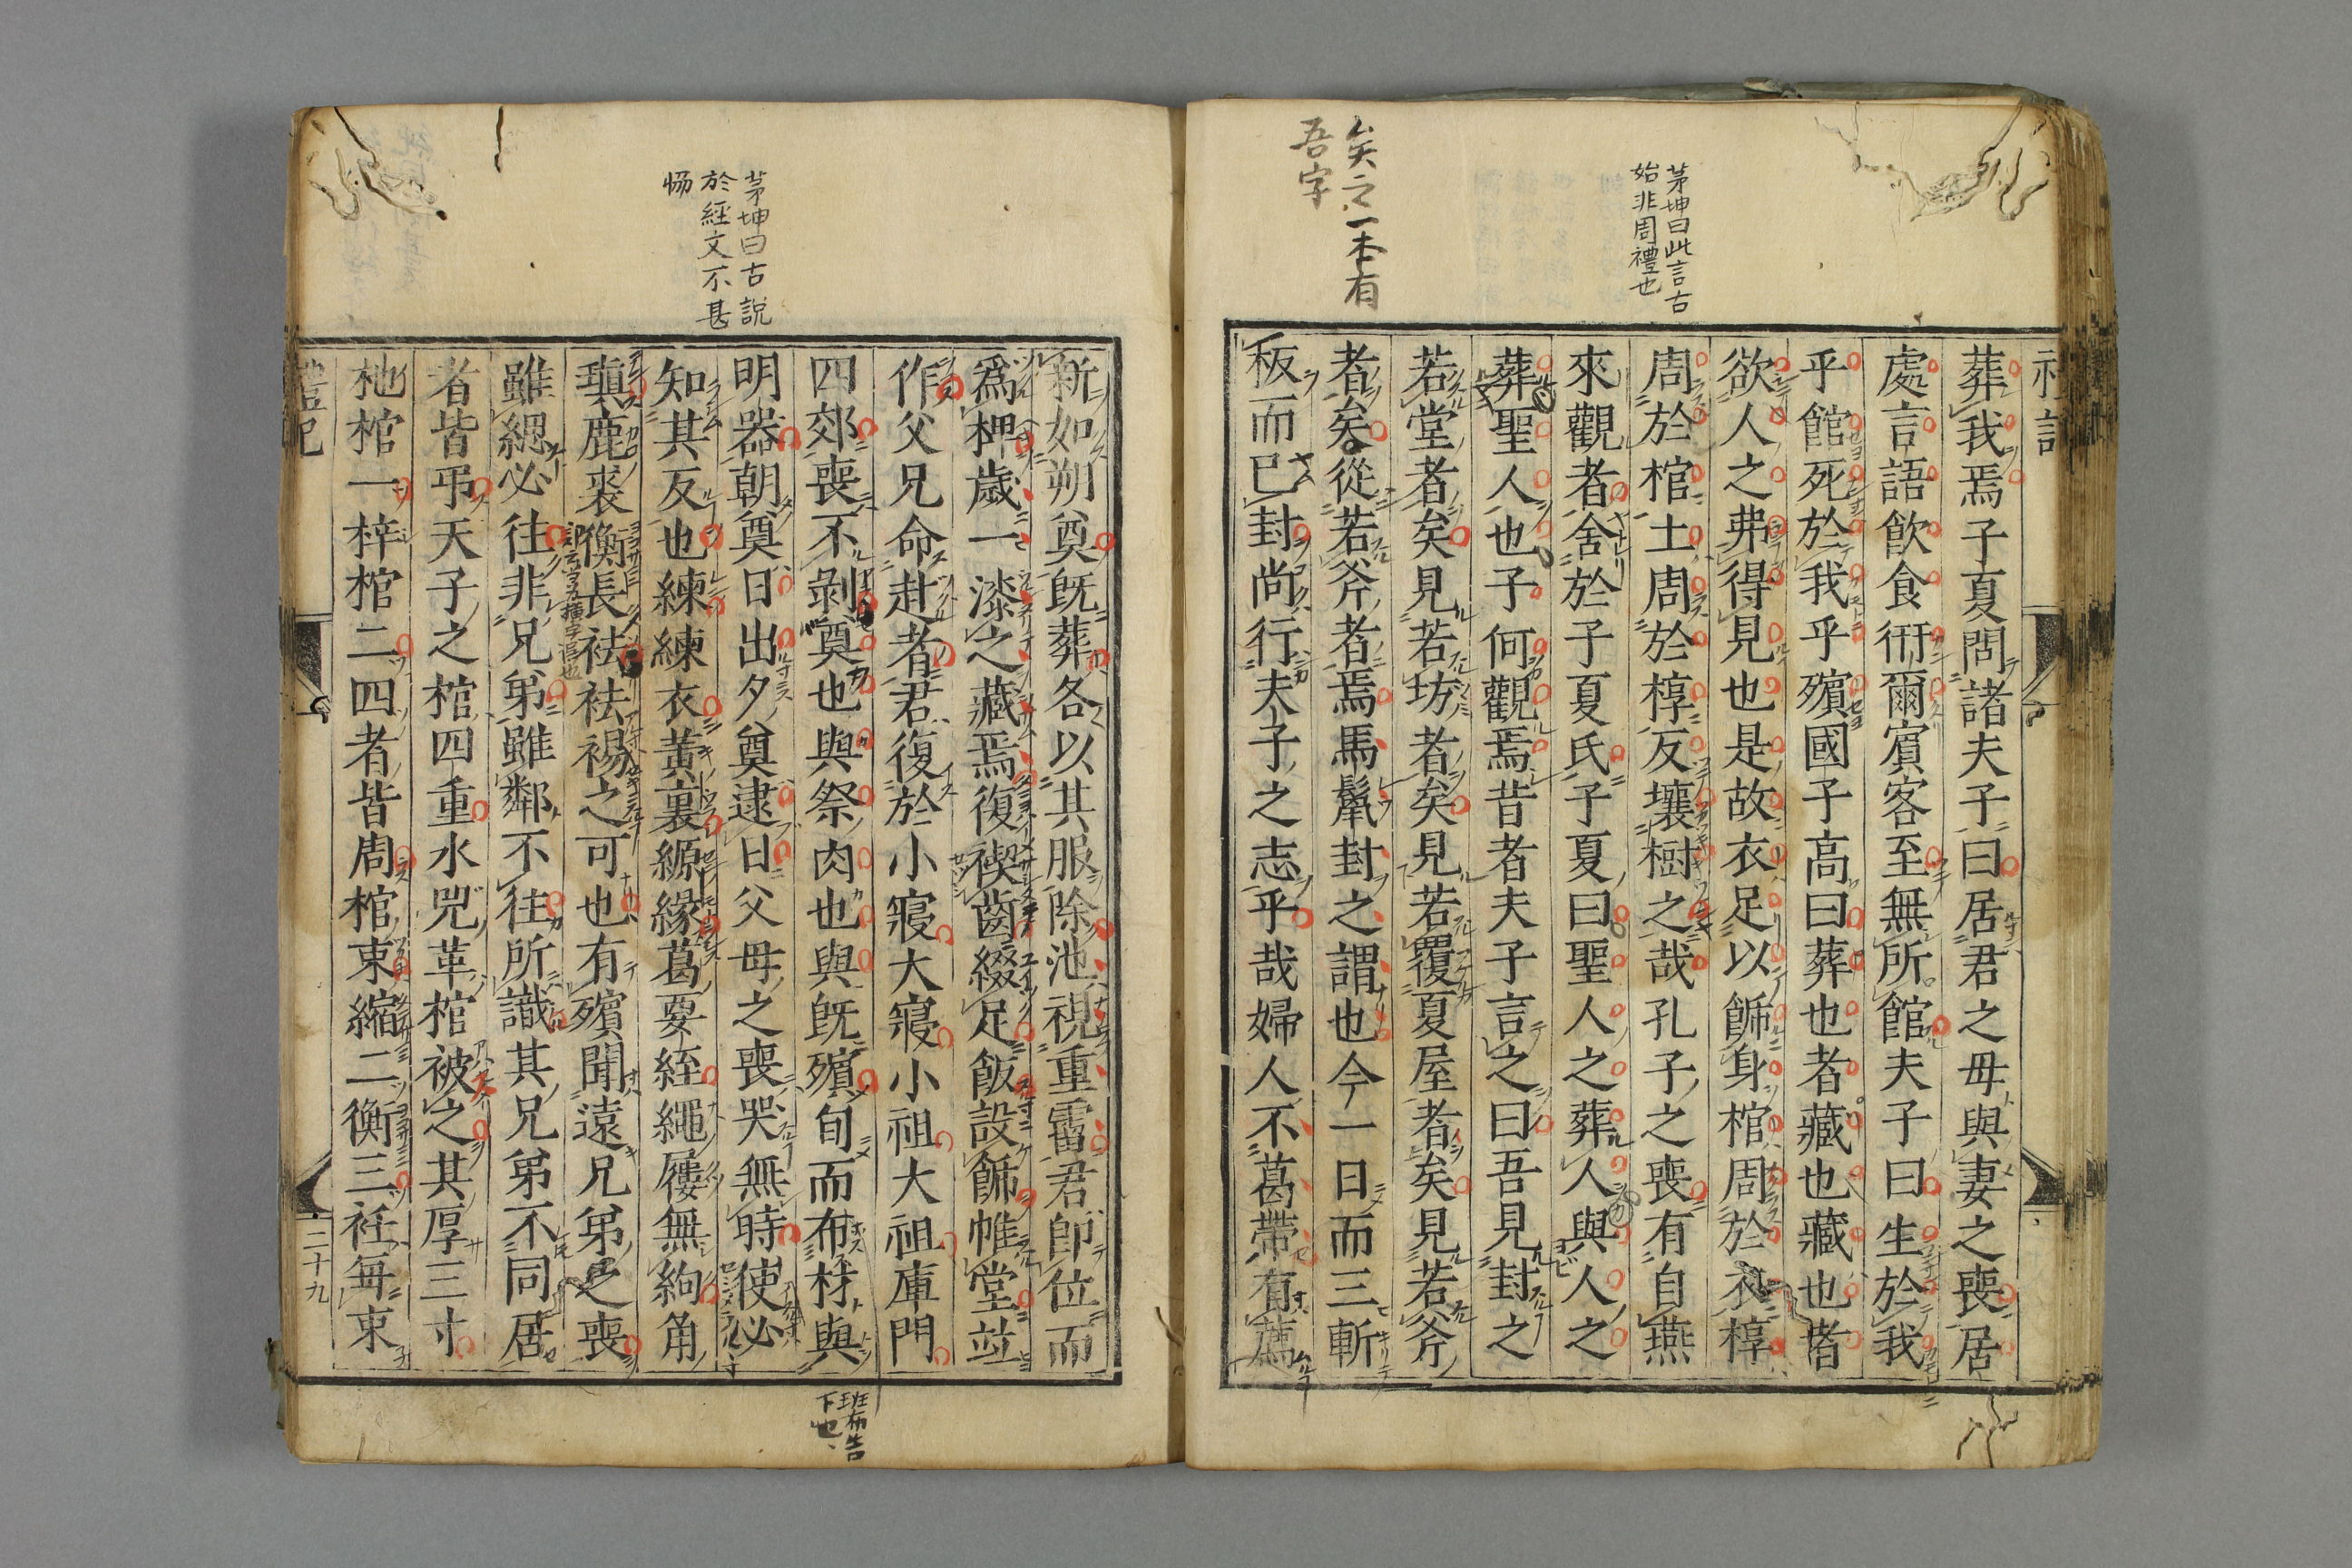 茅坤曰此言古
始非周禮也
矣之一本有
吾字
葬我焉子夏問諸夫子曰居君之母與妻之喪居
處言語飲食衎爾賓客至無所館夫子曰生於我
乎館死於我乎殯國子高曰葬也者藏也藏也者
欲人之弗得見也是故衣足以飾身棺周於衣椁
周於棺土周於椁反壤樹之哉孔子之喪有自燕
來觀者舍於子夏氏子夏曰聖人之葬人與人之
葬聖人也子何觀焉昔者夫子言之曰吾見封之
若堂者矣見若坊者矣見若覆夏屋者矣見若斧
者矣從若斧者焉馬鬛封之謂也今一日而三斬
板而已封尚行夫子之志乎哉婦人不葛帶有薦
茅坤曰古説
於經文不甚
暢
新如朔奠既葬各以其服除池視重霤君即位而
爲椑歲一漆之藏焉復楔齒綴足飯設飾帷堂並
作父兄命赴者君復於小寢大寢小祖大祖庫門
四郊喪不剝奠也與祭肉也與既殯旬而布材與
明器朝奠日出夕奠逮日父母之喪哭無時使必
知其反也練練衣黃裏縓緣葛要絰繩屨無絇角
瑱鹿裘衡長袪袪裼之可也有殯聞遠兄弟之喪
雖緦必往非兄弟雖鄰不往所識其兄弟不同居
者皆弔天子之棺四重水兕革棺被之其厚三寸
杝棺一梓棺二四者皆周棺束縮二衡三衽每束
班布告
下也
禮記
二十九